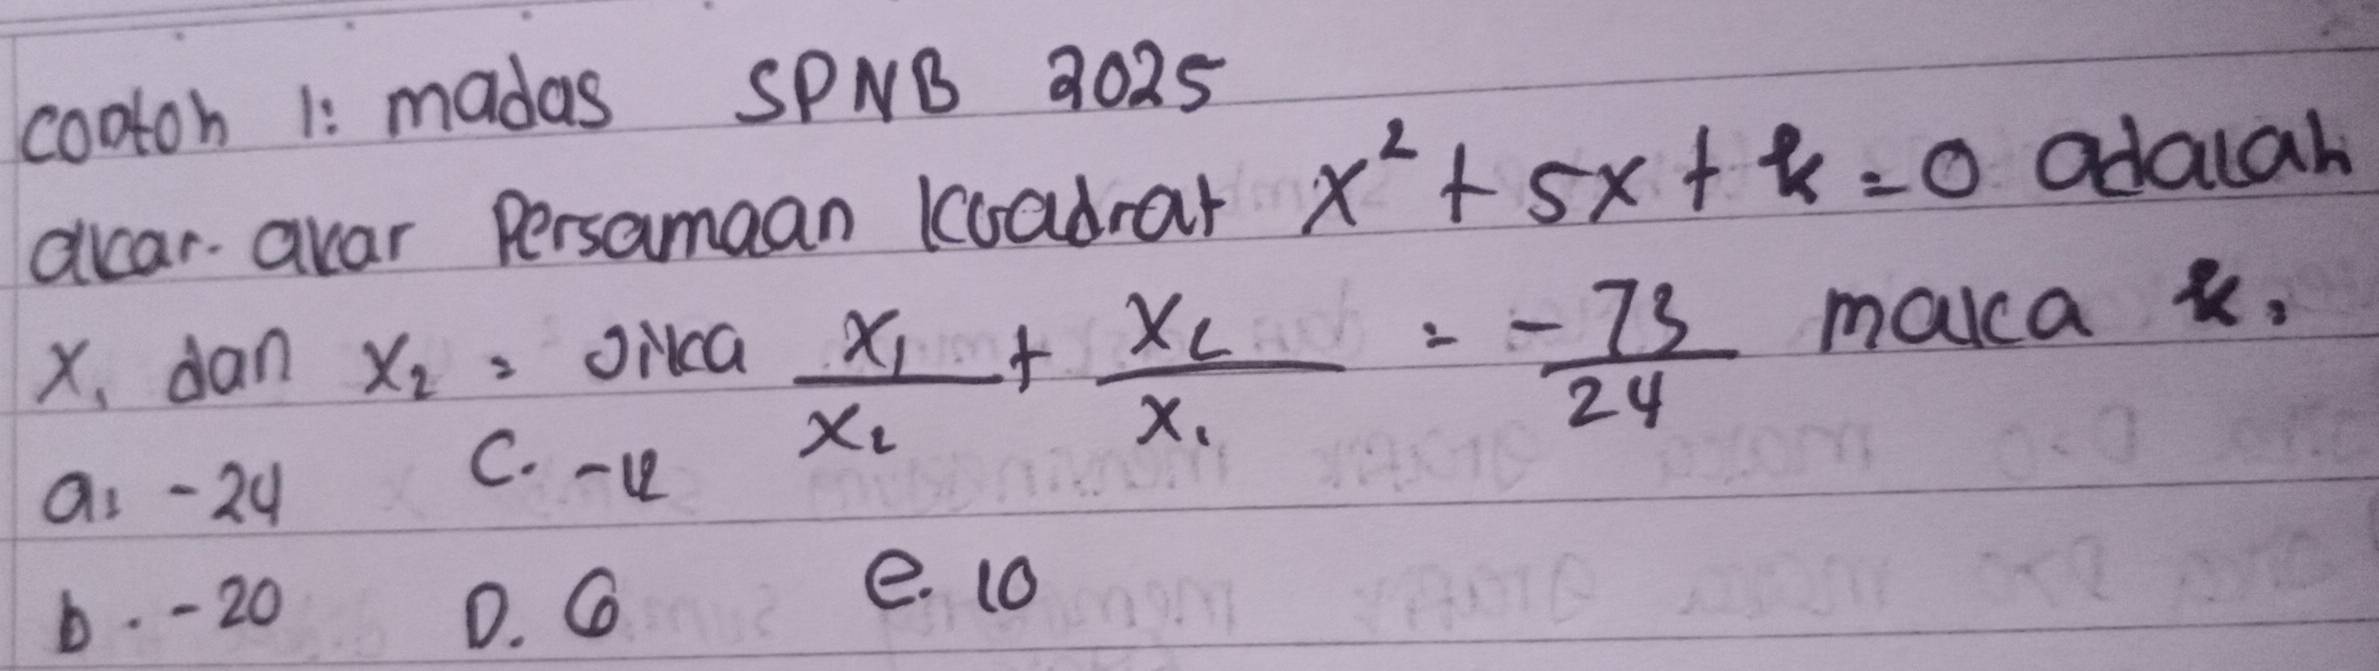 contoh 1: madas SPNB 2025
akar-akar Persamaan kuadrat x² + 5x + k = 0 adalah
x₁ dan x₂, Jika x₁/x₂ + x₂/x₁ = -73/24 maka k =
a. -24 C. -12
b. -20 D. 6 e. 10